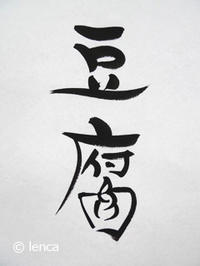 豆腐
© lenca